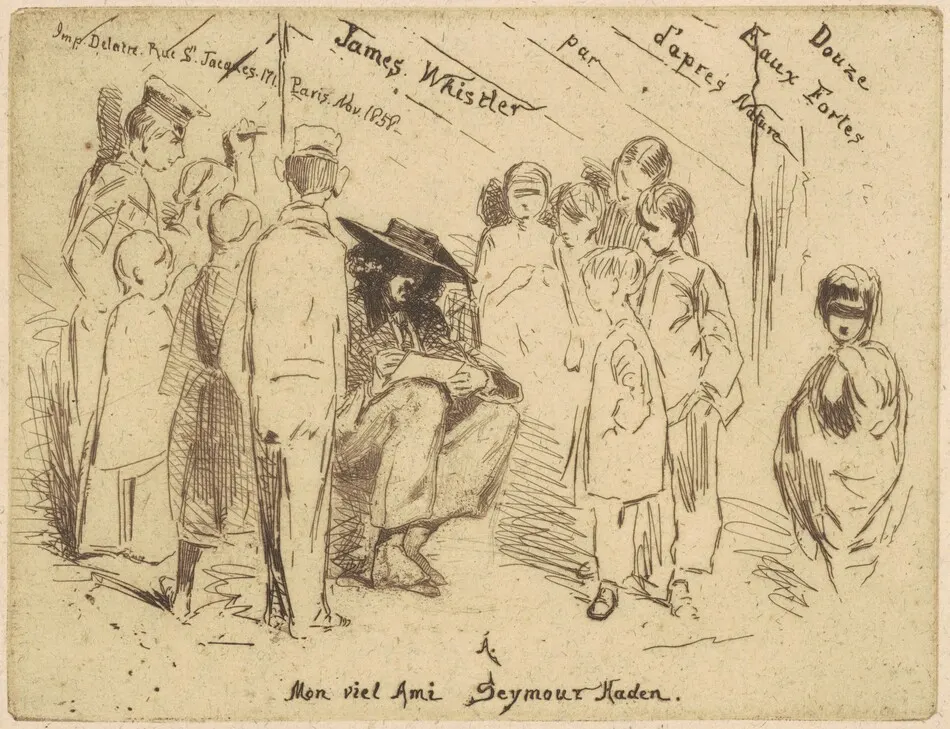 Douze
Eaux Fortes
d'après Nature
par
James Whistler
Imp. Delatre. Rue St. Jacques. 171.
Paris. Nov. 1858.
A.
Mon viel Ami Seymour Haden.